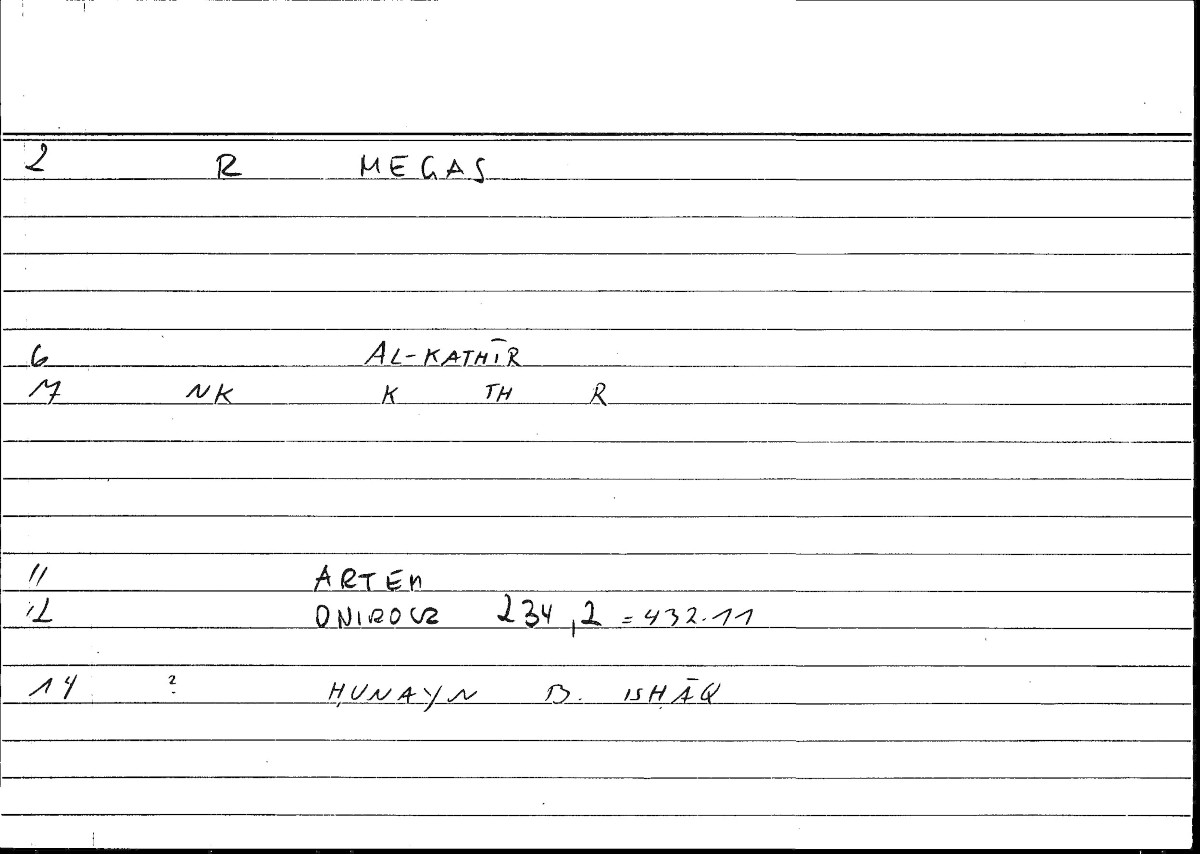 2 R MEGAS
6 AL-KATHĪR
17 NK K TH R
11 ARTEM
12 ONIROCR 234,2 = 432.11
14 ? ḤUNAYN B. ISḤĀQ